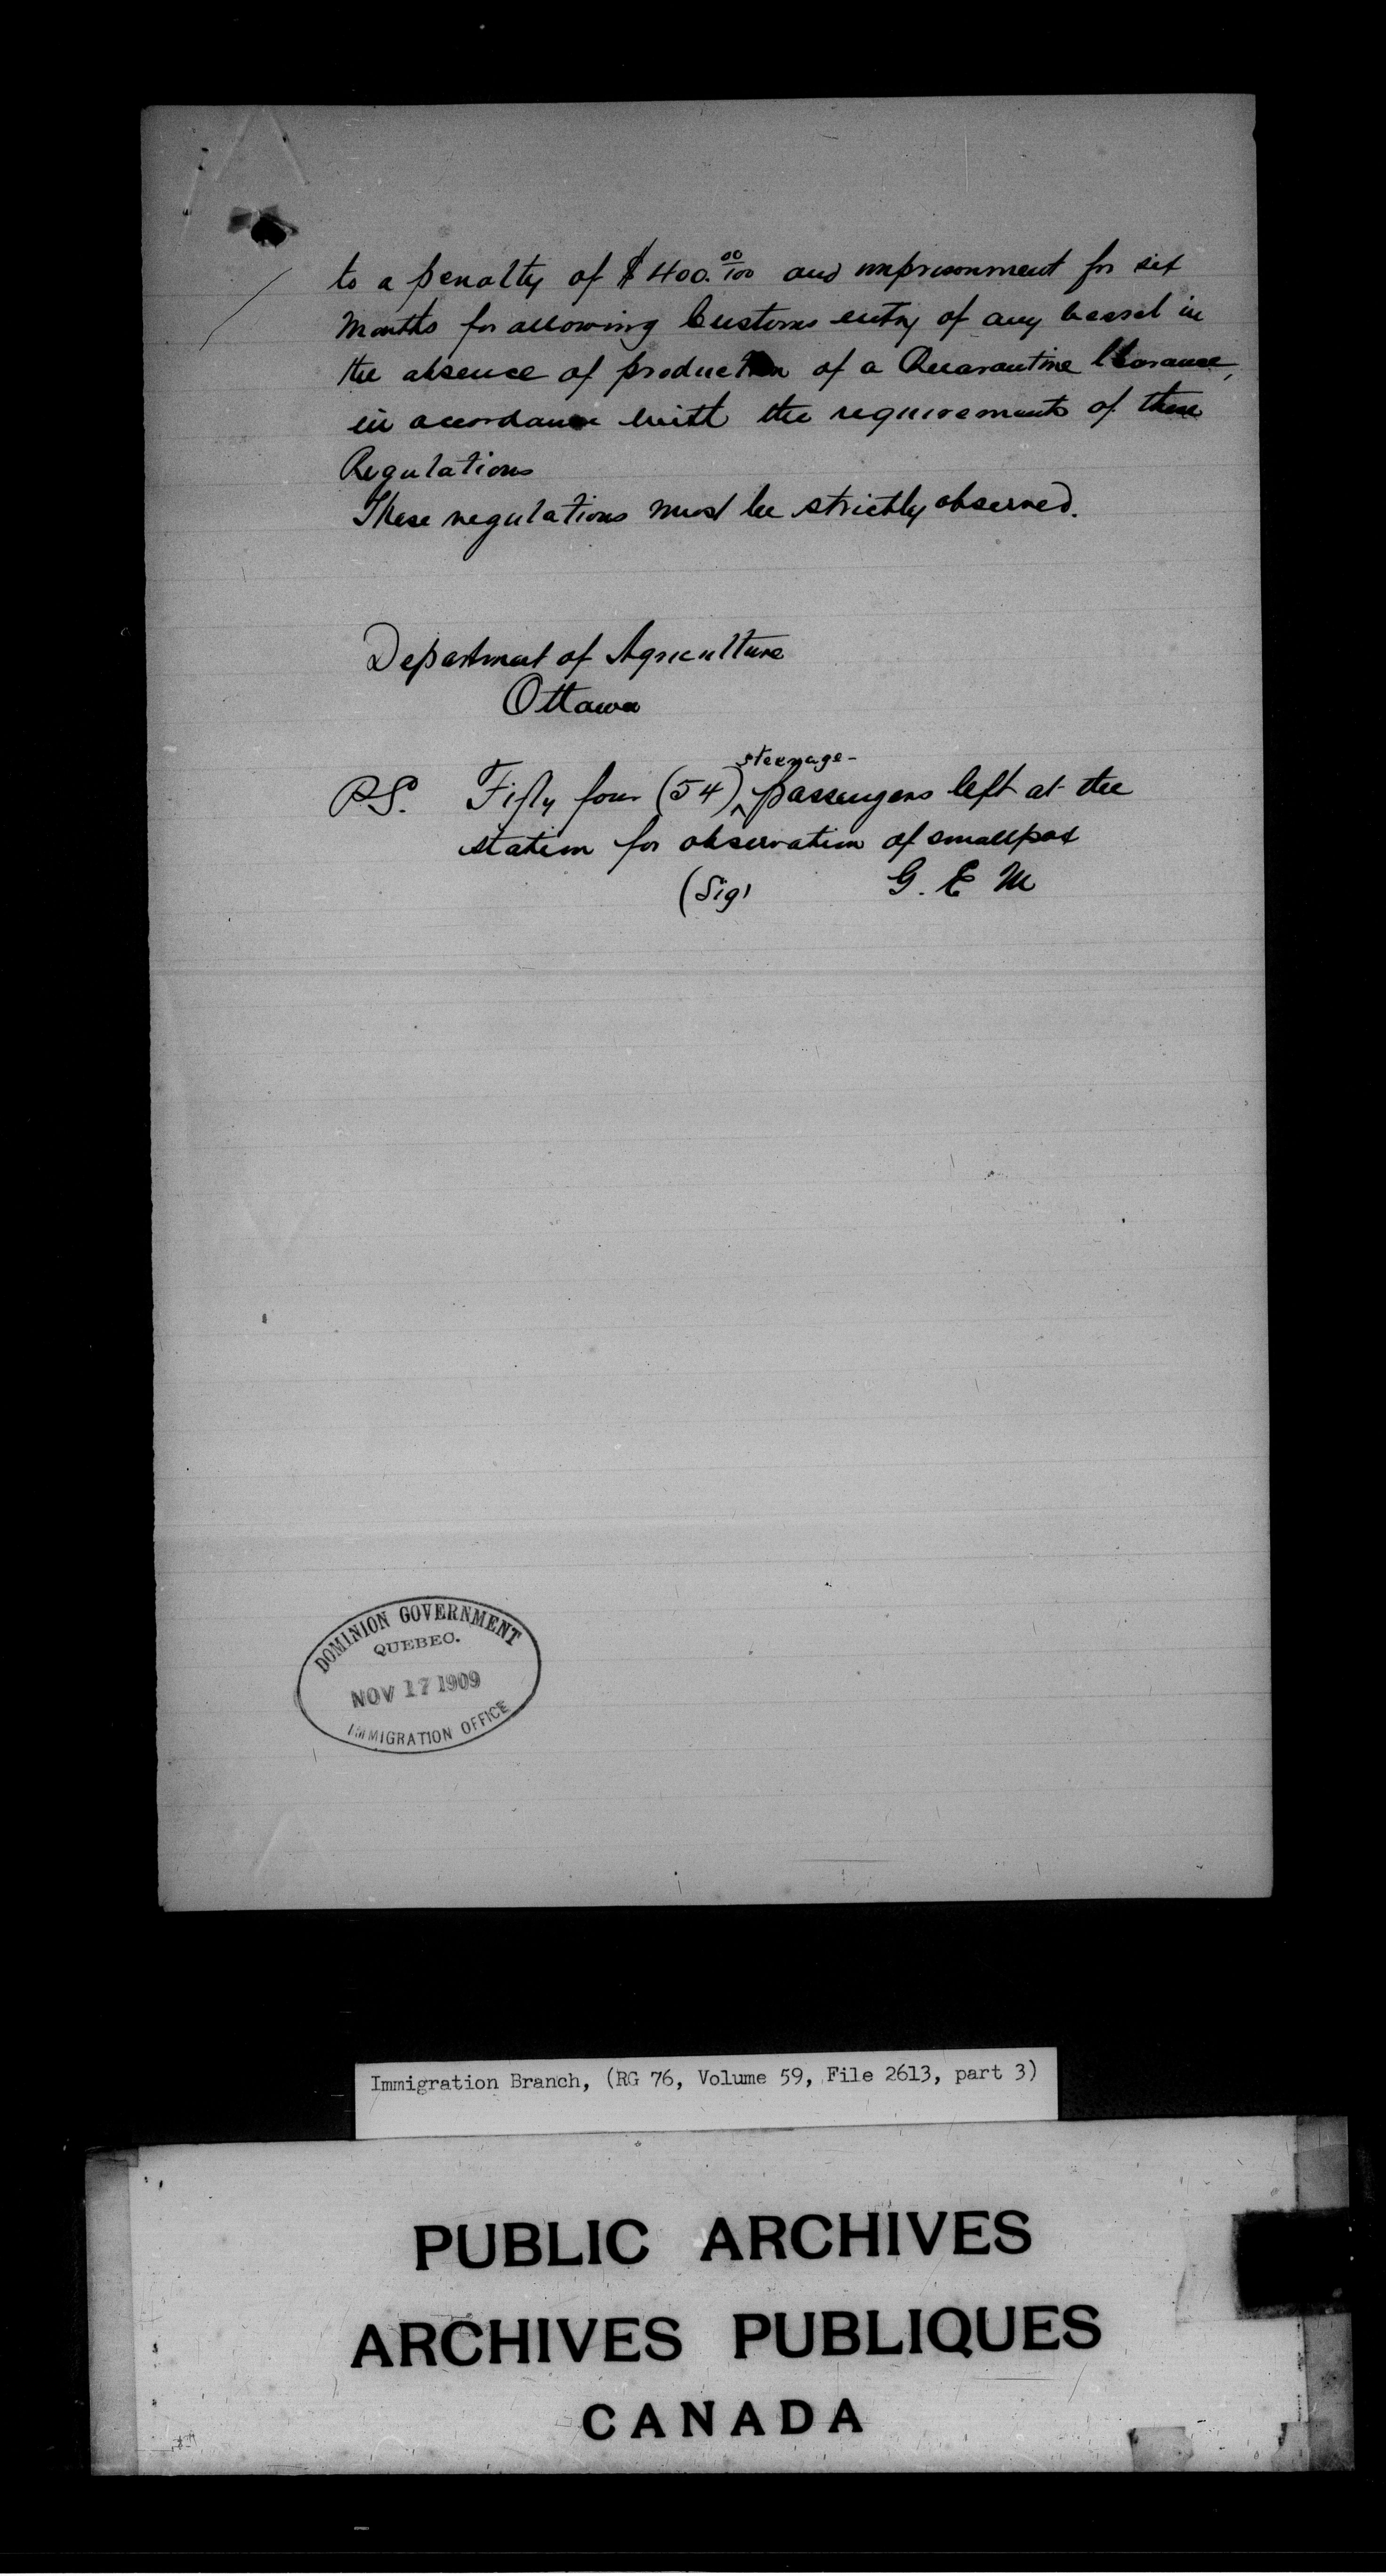 to a penalty of $400.00/100 and imprisonment for six
Months for allowing Customs entry of any vessel in
the absence of production of a Quarantine Clearance,
in accordance with the requirements of these
Regulations
These regulations must be strictly observed.
Department of Agriculture
Ottawa
steerage-
P.S. Fifty four (54) ^ passengers left at the
station for observation of smallpox
(Sig) G. E M
DOMINION GOVERNMENT
QUEBEC.
NOV 17 1909
IMMIGRATION OFFICE
Immigration Branch, (RG 76, Volume 59, File 2613, part 3)
PUBLIC ARCHIVES
ARCHIVES PUBLIQUES
CANADA